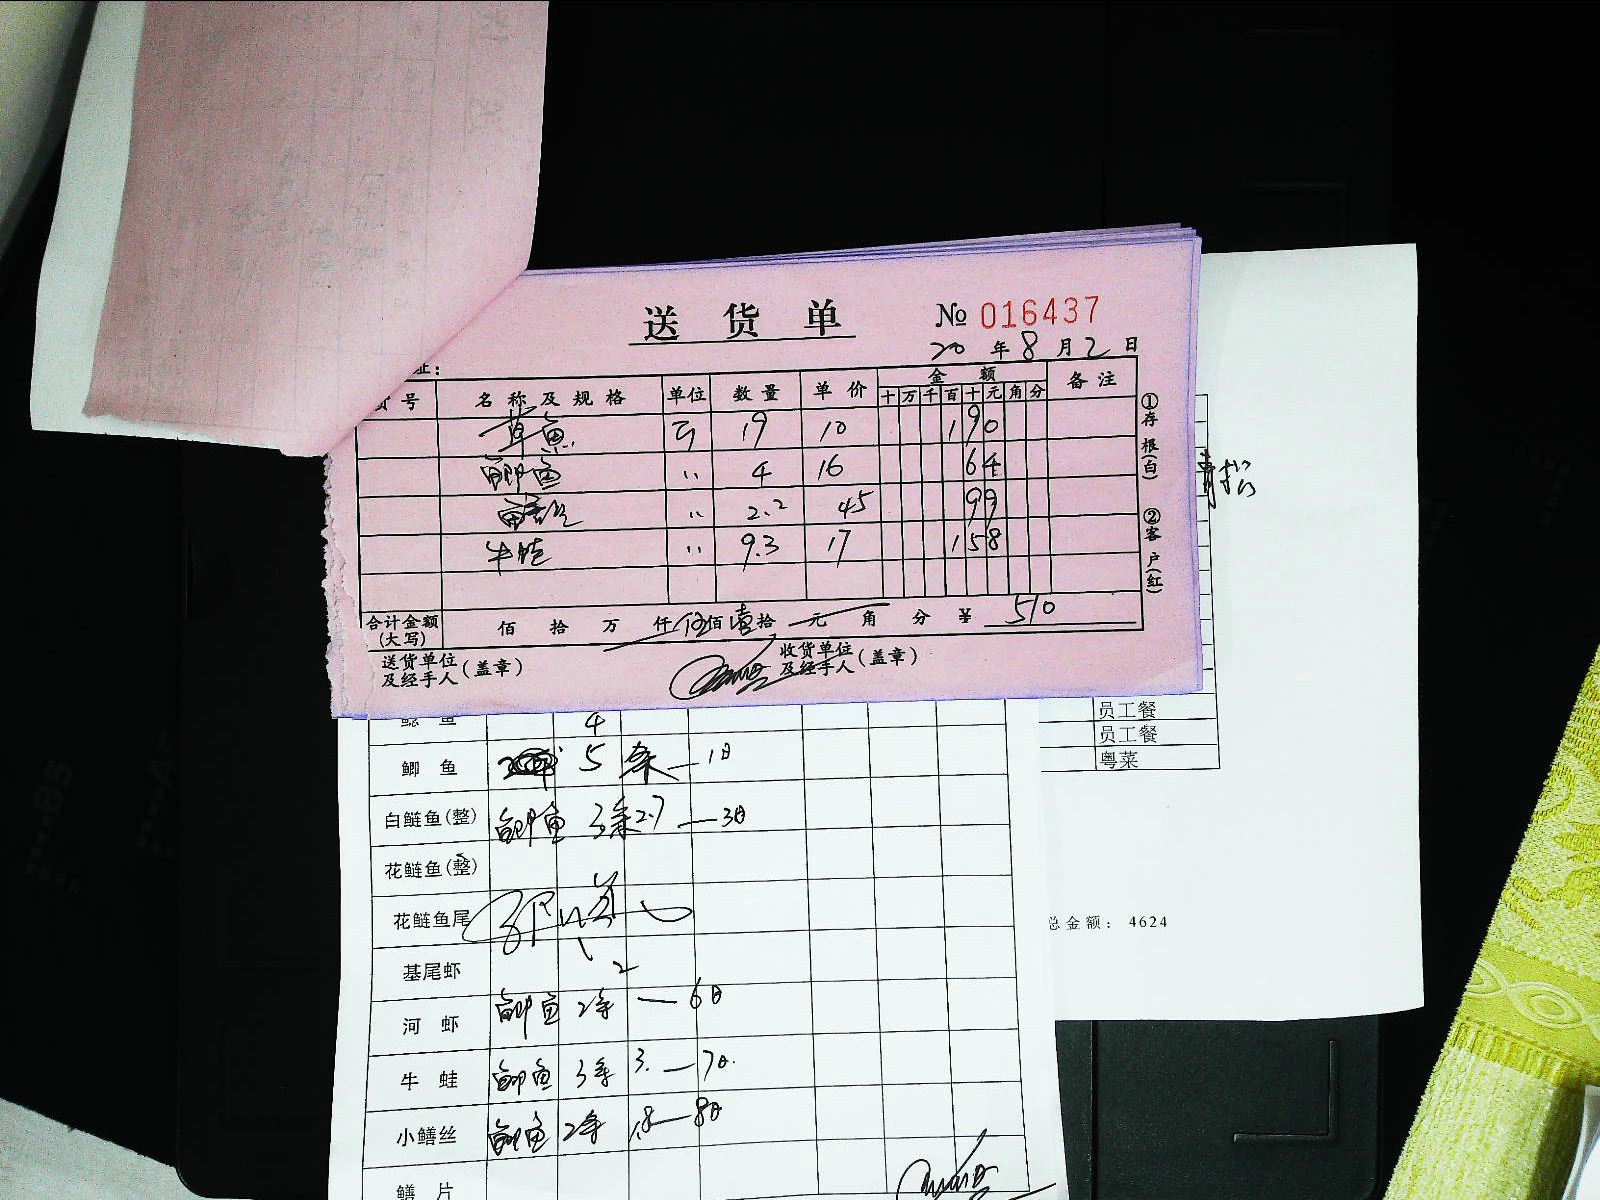 送货单 № 016437
20 年 8 月 2 日
址：
货号 名称及规格 单位 数量 单价 金额 备注
十 万 千 百 十 元 角 分
草鱼 斤 19 10 190
鲫鱼 〃 4 16 64
〃 2.2 45 99
牛蛙 〃 9.3 17 158
合计金额(大写) 佰 拾 万 仟 伍佰壹拾 元 角 分 ¥ 510
送货单位及经手人(盖章) 收货单位及经手人(盖章)
①存根(白) ②客户(红)
员工餐
员工餐
粤菜
总金额： 4624
4
鲫鱼 5 条 — 1日
白鲢鱼(整) 鲫鱼 3条 2.7 — 3日
花鲢鱼(整)
花鲢鱼尾
基尾虾 2
河虾 鲫鱼 2条 — 6日
牛蛙 鲫鱼 3条 3. — 7日.
小鳝丝 鲫鱼 2条 1.8 — 8日
鳝片